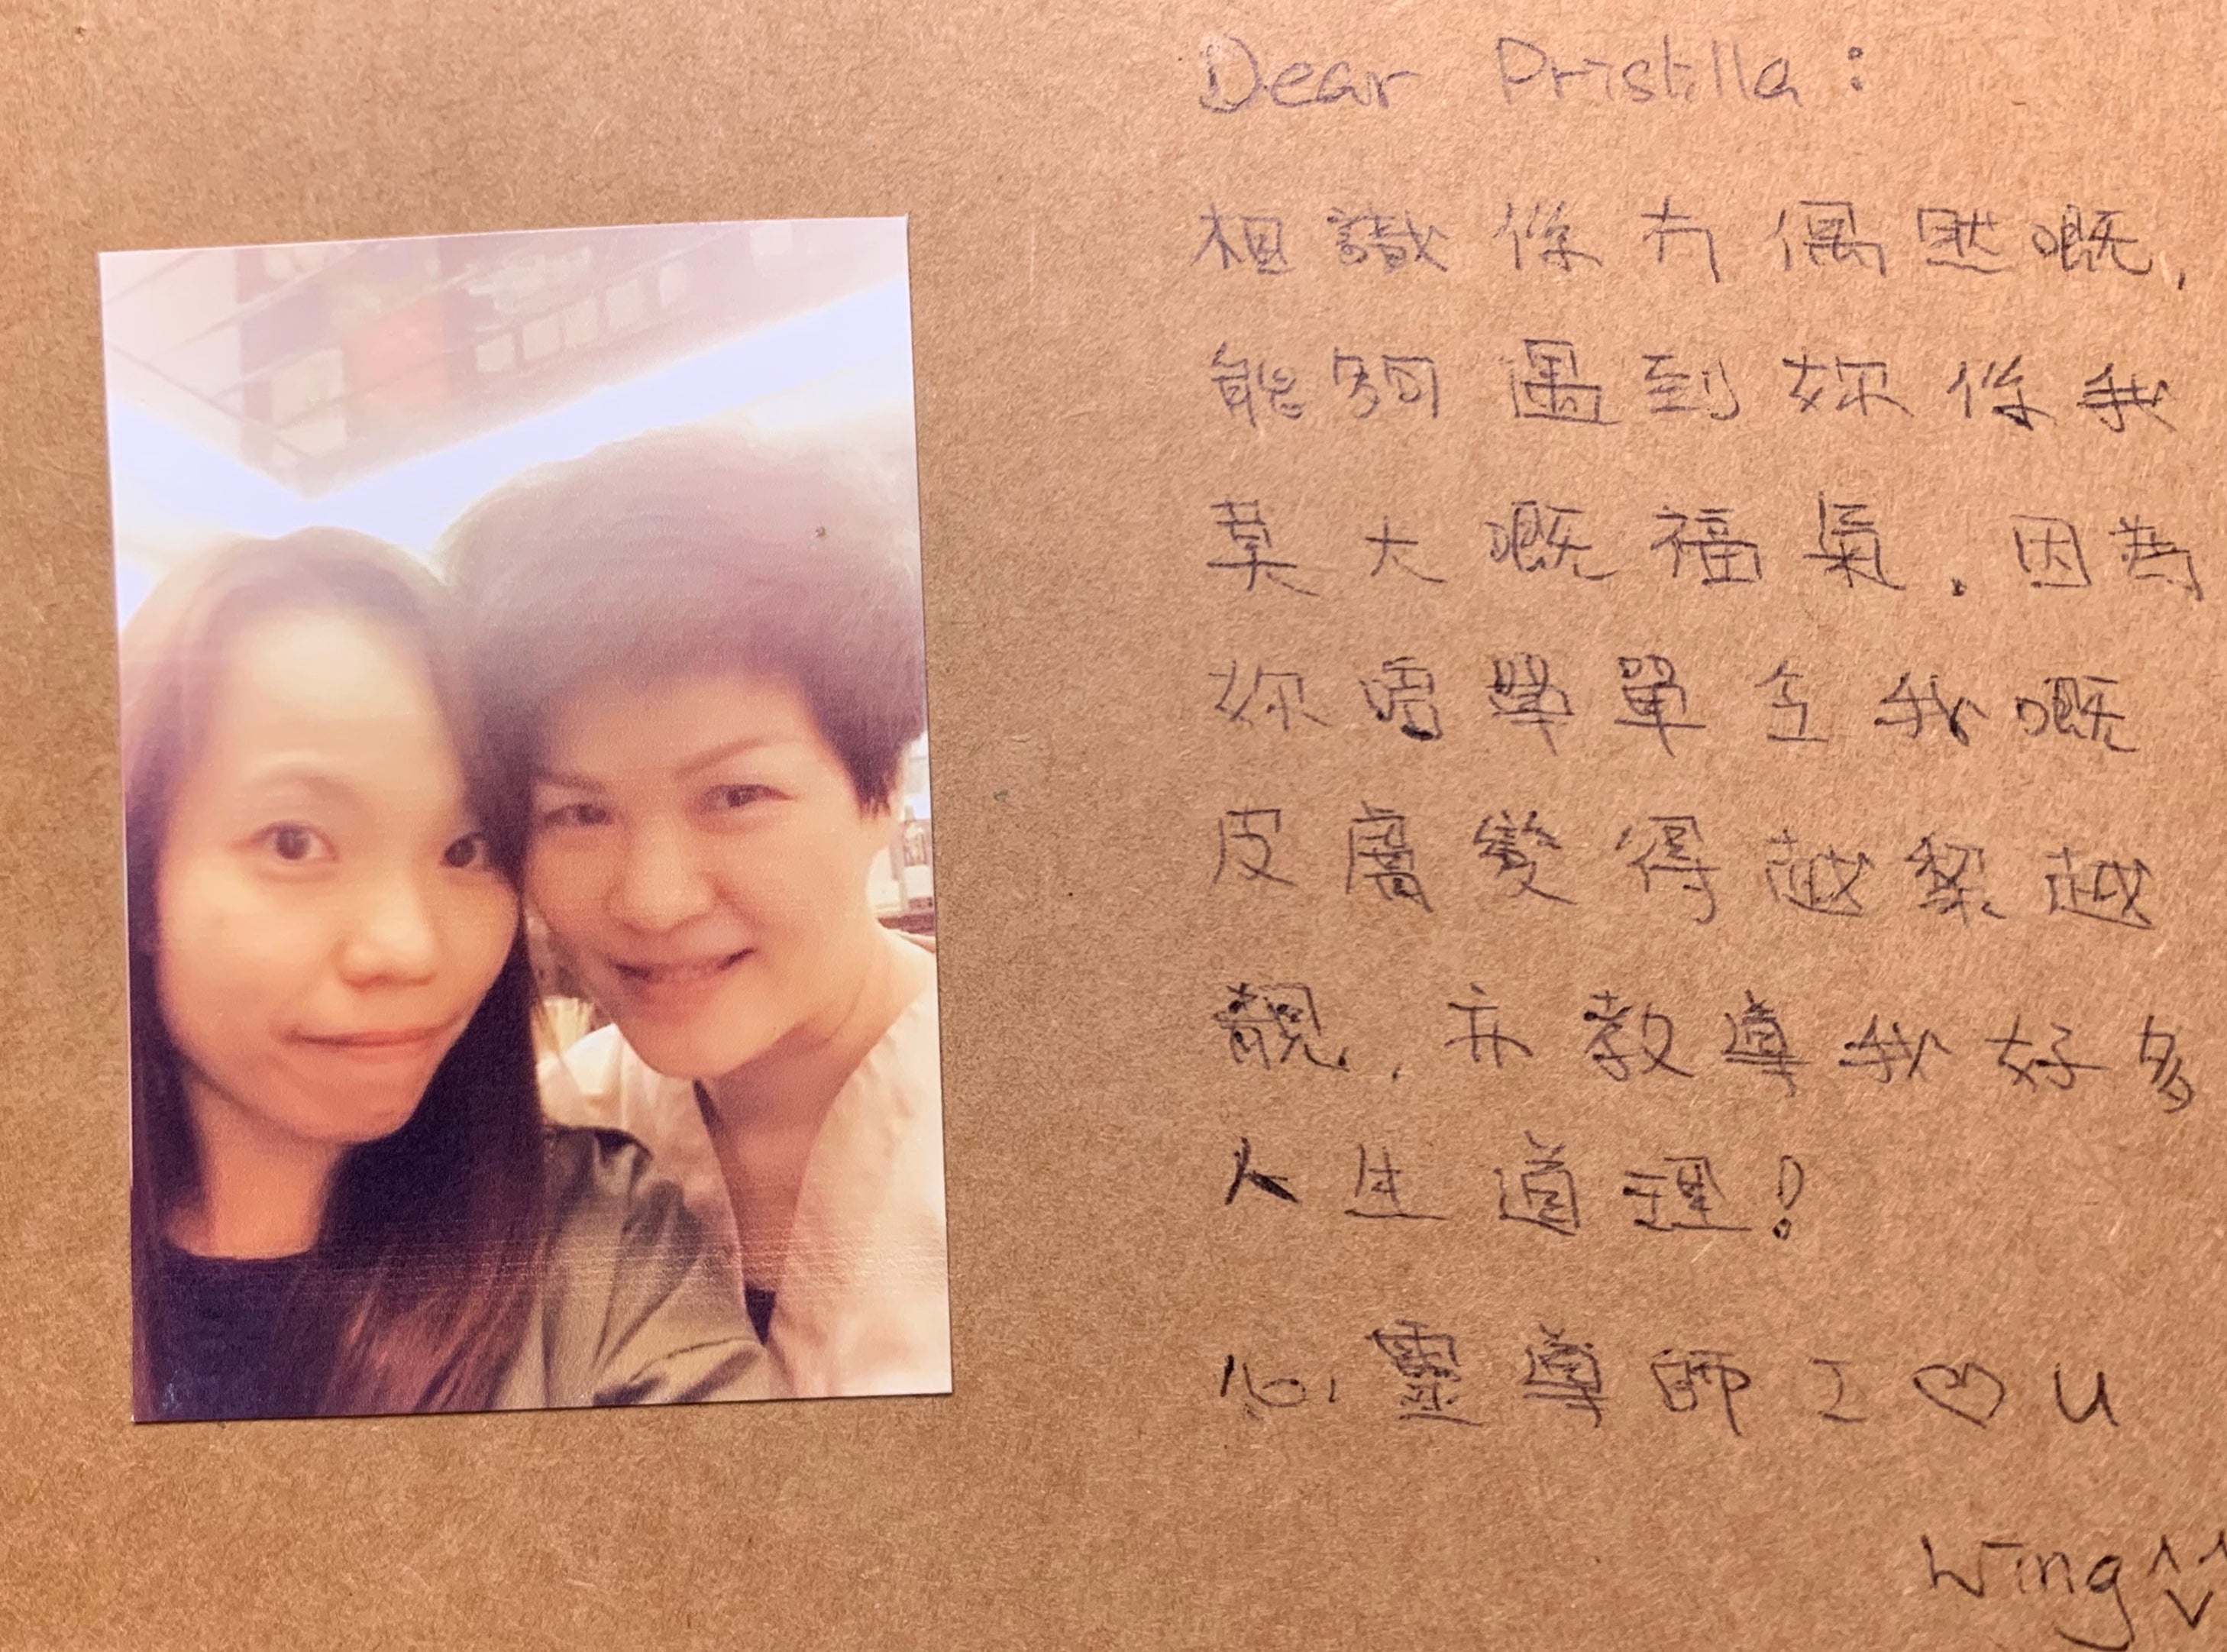 Dear Pristilla :
相識係冇偶然嘅,
能夠遇到妳係我
莫大嘅福氣. 因為
妳唔單單令我嘅
皮膚變得越黎越
靚, 亦教導我好多
人生道理!
心靈導師 I ♡ U
Wing ^v^